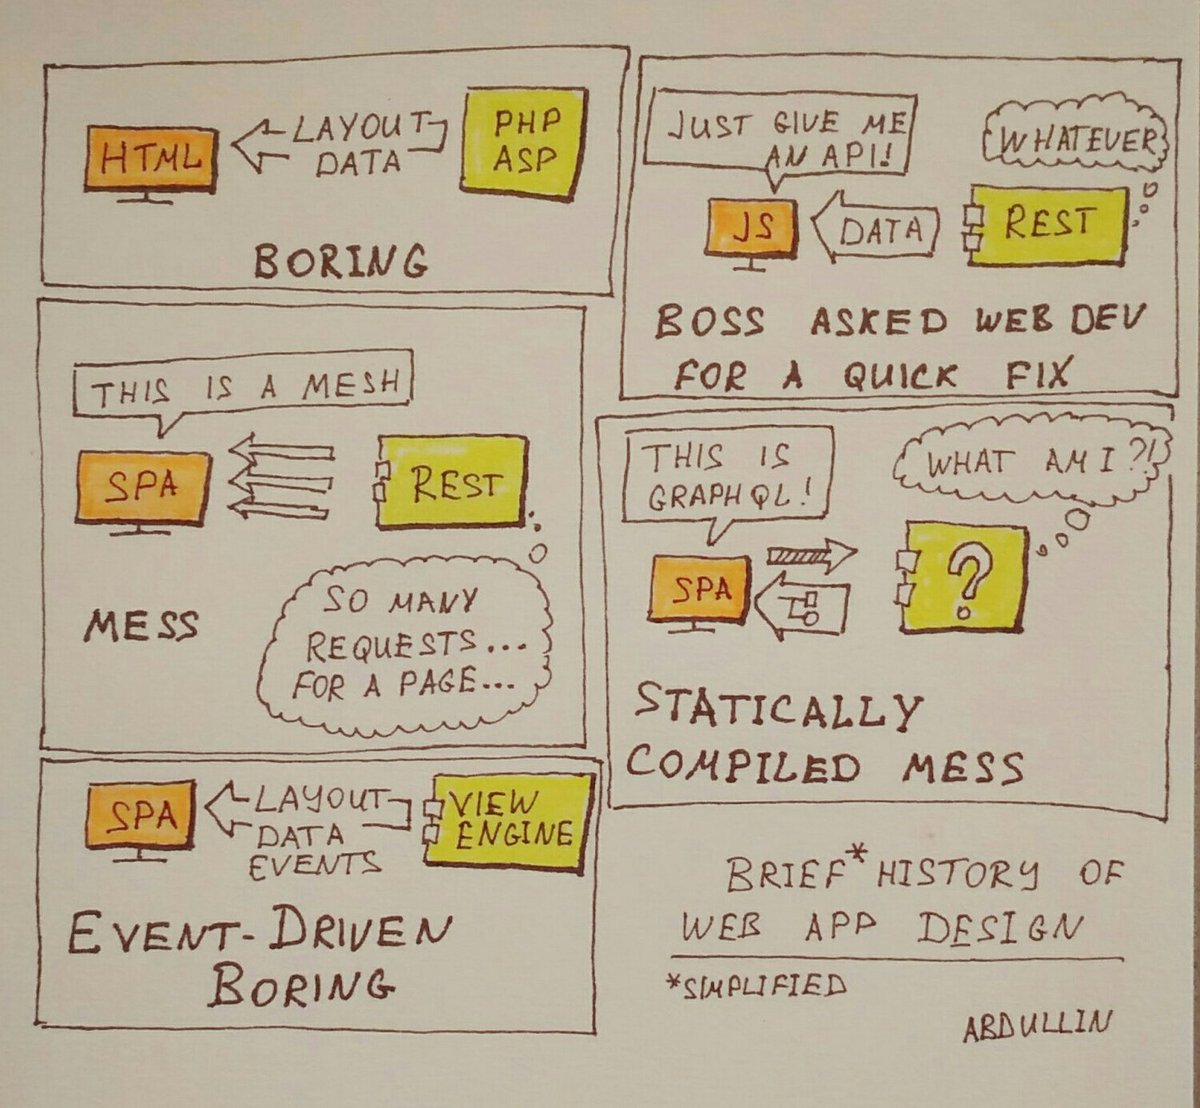 HTML
LAYOUT
DATA
PHP
ASP
BORING
JUST GIVE ME
AN API!
WHATEVER
JS
DATA
REST
BOSS ASKED WEB DEV
FOR A QUICK FIX
THIS IS A MESH
SPA
REST
MESS
SO MANY
REQUESTS...
FOR A PAGE...
THIS IS
GRAPHQL!
WHAT AM I?!
SPA
?
STATICALLY
COMPILED MESS
SPA
LAYOUT
DATA
EVENTS
VIEW
ENGINE
EVENT-DRIVEN
BORING
BRIEF* HISTORY OF
WEB APP DESIGN
*SIMPLIFIED
ABDULLIN